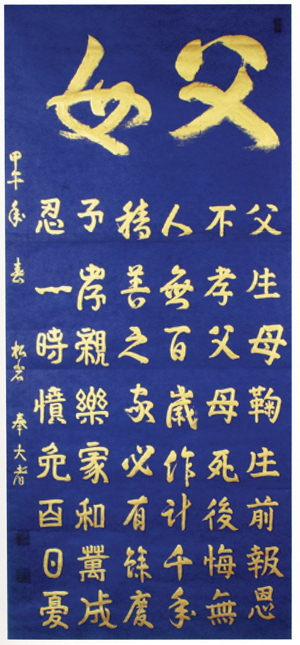 父母
父生母鞠生前報恩
不孝父母死後悔無
人無百歲作計千年
積善之家必有餘慶
子孝親樂家和萬成
忍一時憤免百日憂
甲午年 春 松岩 奉大者